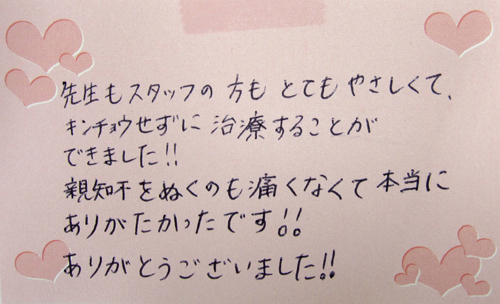 先生もスタッフの方も とても やさしくて、
キンチョウせずに 治療することが
できました!!
親知不をぬくのも痛くなくて 本当に
ありがたかったです!!
ありがとうございました!!